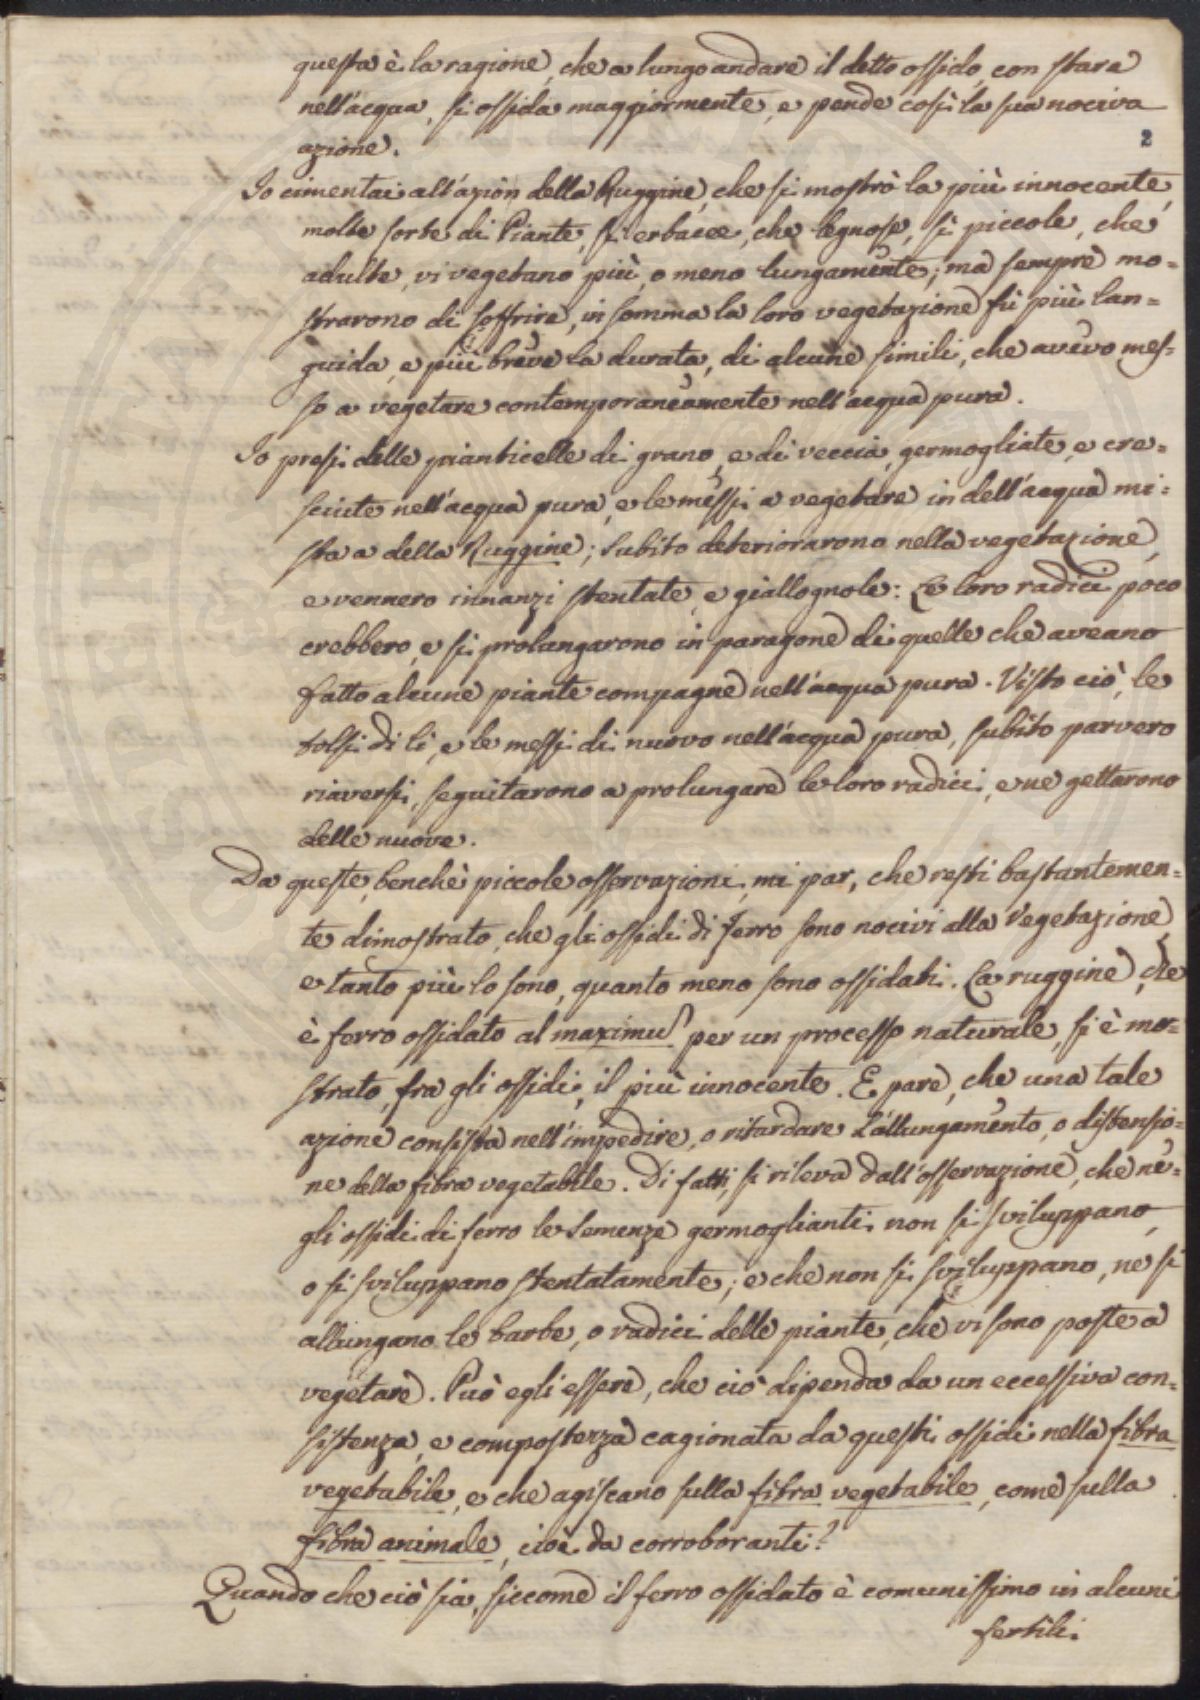 questa è la ragione, che a lungo andare il detto ossido, con stare
nell'acqua, si ossida maggiormente, e pende così la sua nociva
azione.
2
Io cimentai all'aziòn della Ruggine, che si mostrò la più innocente,
molte sorte di Piante, sì erbacee, che legnose, sì piccole, che
adulte, vi vegetano più, o meno lungamente; ma sempre mo=
strarono di soffrire, in somma la loro vegetazione fù più lan=
guida, e più breve la durata, di alcune simili, che avevo mes=
so a vegetare contemporaneamente nell'acqua pura.
Io presi delle pianticelle di grano, e di veccia, germogliate, e cre=
sciute nell'acqua pura, e le messi a vegetare in dell'acqua mi=
sta a della Ruggine; subito deteriorarono nella vegetazione,
e vennero innanzi stentate, e giallognole: Le loro radici poco
crebbero, e si prolungarono in paragone di quelle che aveano
fatto alcune piante compagne nell'acqua pura. Visto ciò, le
tolsi di lì, e le messi di nuovo nell'acqua pura, subito parvero
riaversi, seguitarono a prolungare le loro radici, e ne gettarono
delle nuove.
Da queste, benchè piccole osservazioni, mi par, che resti bastantemen=
te dimostrato, che gli ossidi di ferro sono nocivi alla Vegetazione,
e tanto più lo sono, quanto meno sono ossidati. La ruggine, che
è ferro ossidato al maximus per un processo naturale, si è mo=
strato, fra gli ossidi, il più innocente. E pare, che una tale
azione consista nell'impedire, o ritardare l'allungamento, o distensio=
ne della fibra vegetabile. Di fatti, si rileva dall'osservazione, che ne=
gli ossidi di ferro le semenze germoglianti non si sviluppano,
o si sviluppano stentatamente; e che non si sviluppano, ne si
allungano le barbe, o radici delle piante, che vi sono poste a
vegetare. Può egli essere, che ciò dipenda da un eccessiva con=
sistenza, e compostezza cagionata da questi ossidi nella fibra
vegetabile, e che agiscano sulla fibra vegetabile, come sulla
fibra animale, cioè da corroboranti?
Quando che ciò sia, siccome il ferro ossidato è comunissimo in alcuni
fertili.